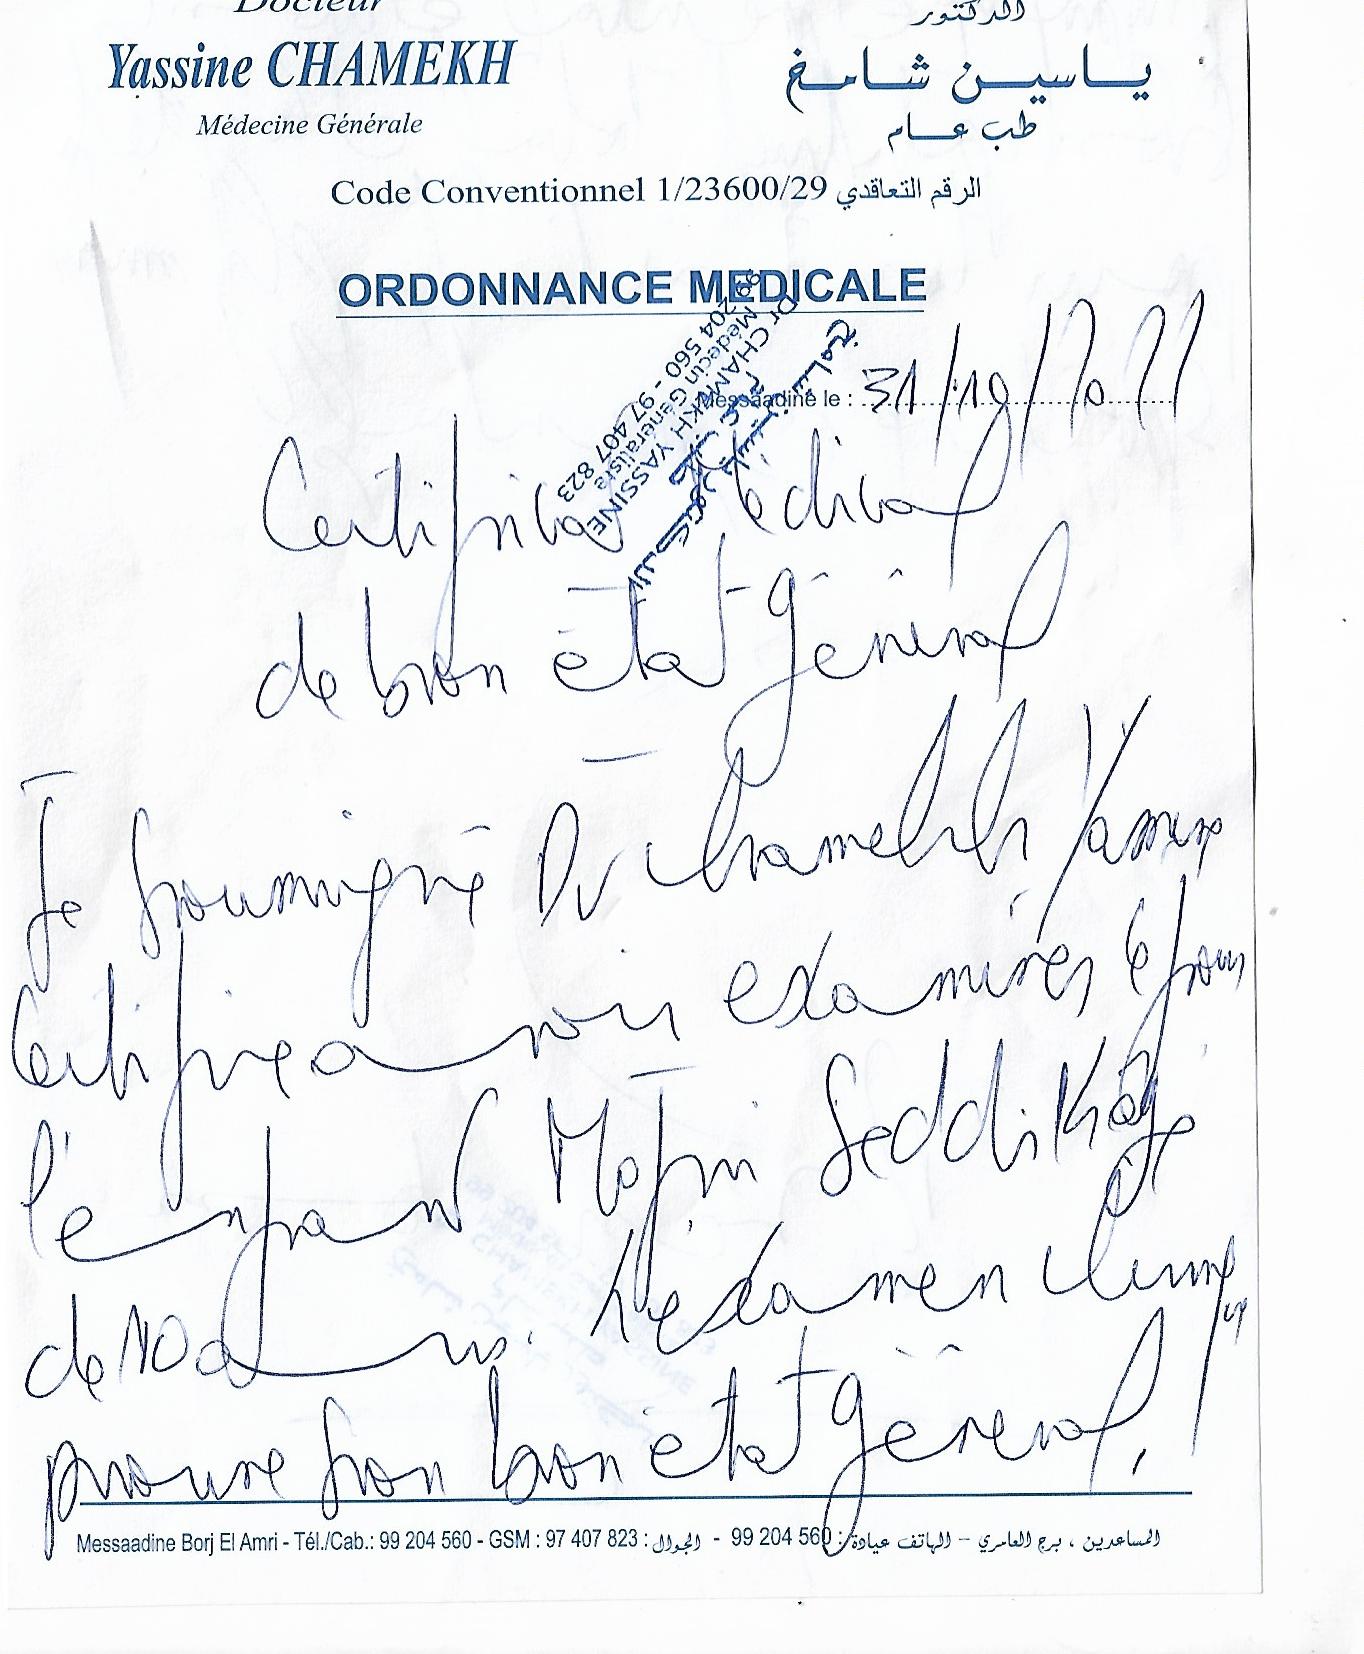 Docteur
Yassine CHAMEKH
Médecine Générale
الدكتور
ياسين شامخ
طب عام
Code Conventionnel 1/23600/29 الرقم التعاقدي
ORDONNANCE MEDICALE
Messaadine le : 31/10/2022
Dr CHAMEKH YASSINE
Médecin Généraliste
99 204 560 - 97 407 823
Certificat Médical
de bon état général
Je soussigné Dr Chamekh Yassine
Certifie avoir examiner ce jour
l'enfant Seddik
de 10 ans. L'examen clinique
prouve son bon état général.
Messaadine Borj El Amri - Tél./Cab.: 99 204 560 - GSM : 97 407 823 : الجوال - 99 204 560 : المساعدين ، برج العامري – الهاتف عيادة